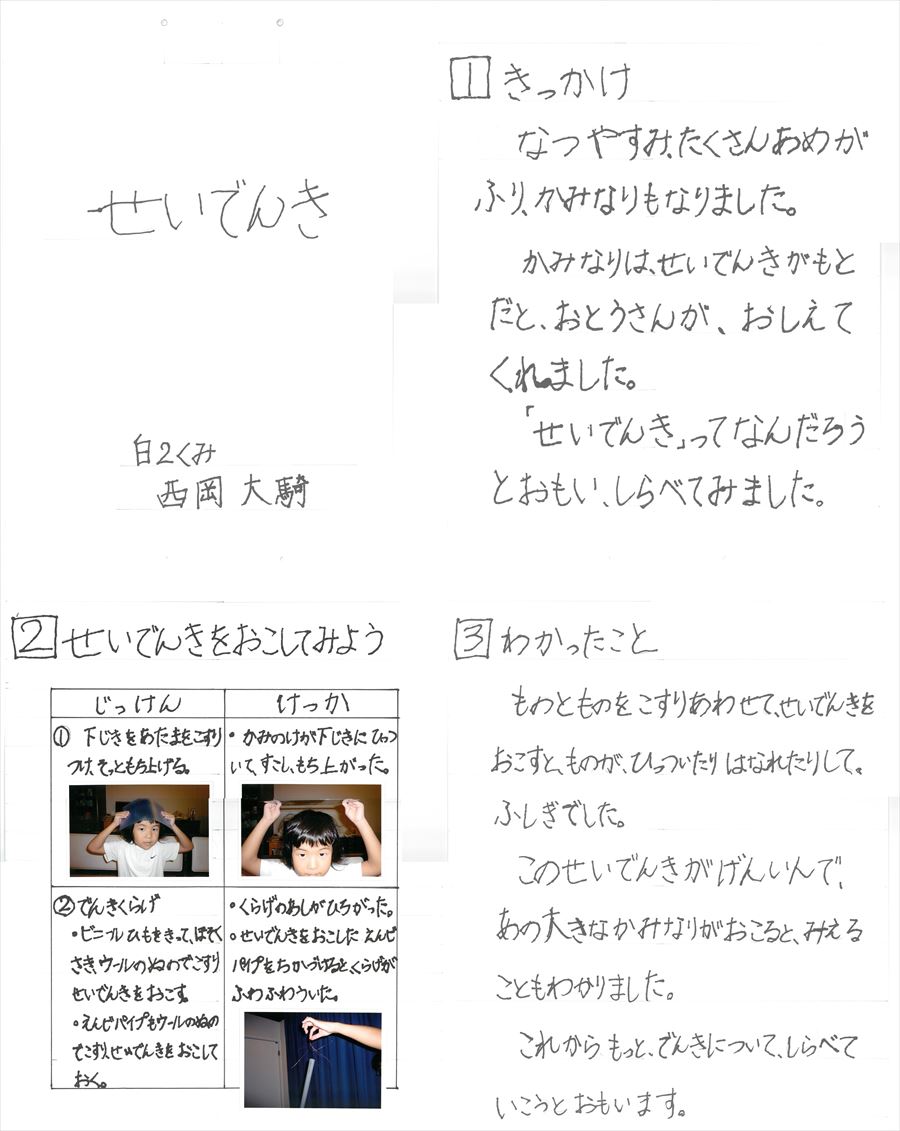 せいでんき
白2くみ
西岡 大騎
1 きっかけ
なつやすみ、たくさんあめが
ふり、かみなりもなりました。
かみなりは、せいでんきがもと
だと、おとうさんが、おしえて
くれました。
「せいでんき」ってなんだろう
とおもい、しらべてみました。
2 せいでんきをおこしてみよう
じっけん
けっか
① 下じきをあたまをこすり
つけ、そっともち上げる。
・かみのけが下じきにひっつ
いて、すこし、もち上がった。
② でんきくらげ
・ビニールひもをきって、ほそく
さき、ウールのぬのでこすり
せいでんきをおこす。
・えんじパイプもウールのぬの
でこすり、せいでんきをおこして
おく。
・くらげのあしがひろがった。
・せいでんきをおこした えんビ
パイプをちかづけると、くらげが
ふわふわういた。
3 わかったこと
ものとものをこすりあわせて、せいでんきを
おこすと、ものが、ひっついたりはなれたりして。
ふしぎでした。
このせいでんきがげんいんで、
あの大きなかみなりがおこると、みえる
こともわかりました。
これからもっと、でんきについて、しらべて
いこうとおもいます。